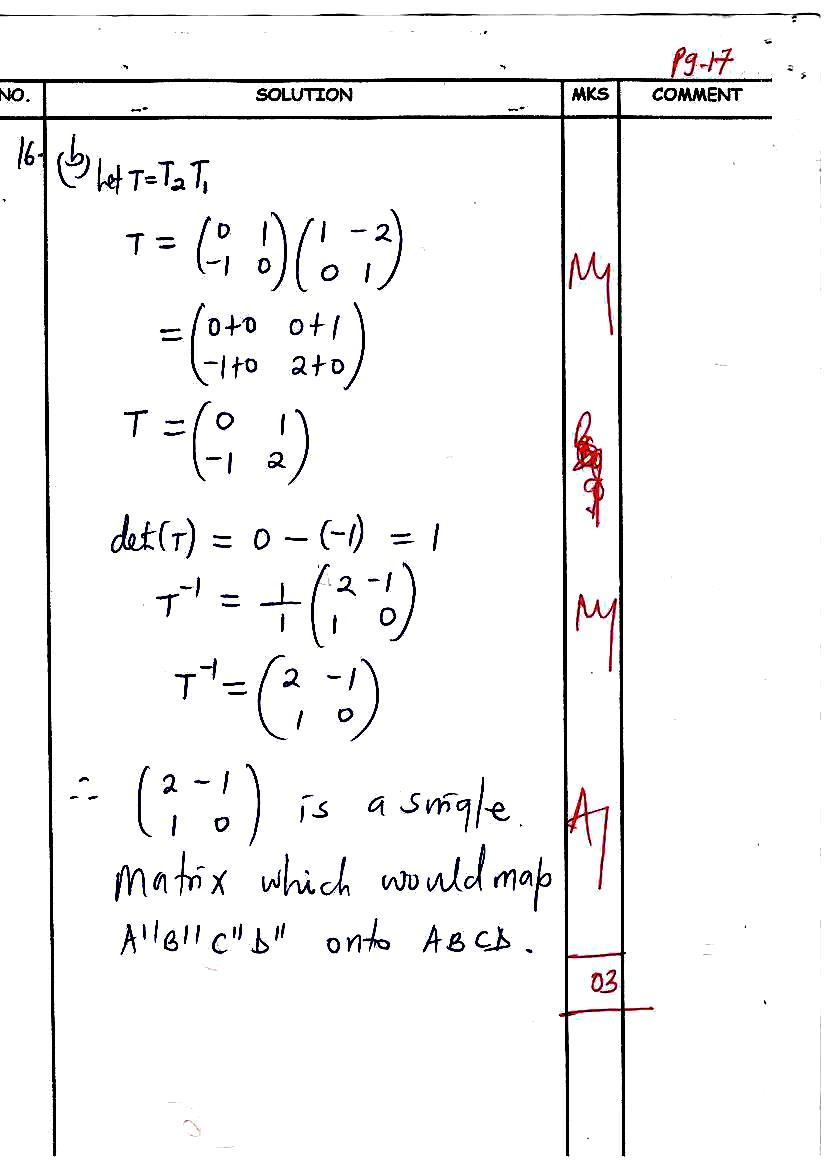 Pg-17
NO. SOLUTION MKS COMMENT
16. (b) Let T=T₂T₁
T = (0 1
-1 0)(1 -2
0 1) M1
= (0+0 0+1
-1+0 2+0)
T = (0 1
-1 2)
det(T) = 0 - (-1) = 1
T⁻¹ = 1/1 (2 -1
1 0) M1
T⁻¹ = (2 -1
1 0)
∴ (2 -1
1 0) is a single A1
Matrix which would map
A''B''C''D'' onto ABCD.
03